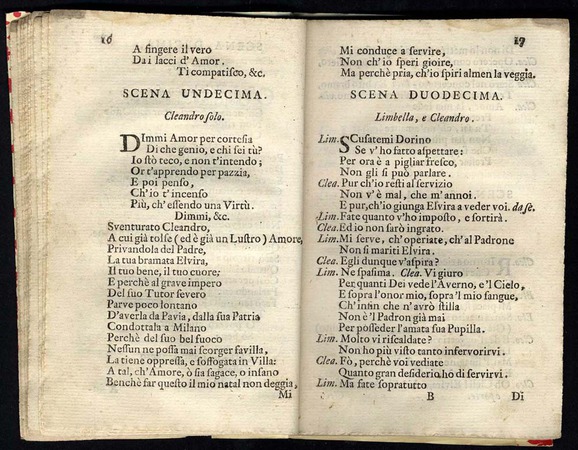 16
A fingere il vero
Da i lacci d'Amor.
Ti compatisco, &c.
SCENA UNDECIMA.
Cleandro solo.
DImmi Amor per cortesia
Di che genio, e chi sei tù?
Io stò teco, e non t'intendo;
Or t'apprendo per pazzia,
E poi penso,
Ch'io t'incenso
Più, ch'essendo una Virtù.
Dimmi, &c.
Sventurato Cleandro,
A cui già tolse (ed è già un Lustro) Amore,
Privandola del Padre,
La tua bramata Elvira,
Il tuo bene, il tuo cuore;
E perchè al grave impero
Del suo Tutor severo
Parve poco lontano
D'averla da Pavia, dalla sua Patria
Condottala a Milano
Perchè del suo bel fuoco
Nessun ne possa mai scorger favilla,
La tiene oppressa, e soffogata in Villa:
A tal, ch'Amore, ò sia sagace, o insano
Benchè far questo il mio natal non deggia,
Mi
17
Mi conduce a servire,
Non ch'io speri gioire,
Ma perchè pria, ch'io spiri almen la veggia.
SCENA DUODECIMA.
Limbella, e Cleandro.
Lim. SCusatemi Dorino
Se v'hò fatto aspettare:
Per ora è a pigliar fresco,
Non gli si può parlare.
Clea. Pur ch'io resti al servizio
Non v'è mal, che m'annoi.
E pur, ch'io giunga Elvira a veder voi. da sè.
Lim. Fate quanto v'hò imposto, e sortirà.
Clea. Ed io non sarò ingrato.
Lim. Mi serve, ch'operiate, ch'al Padrone
Non si mariti Elvira.
Clea. Egli dunque v'aspira?
Lim. Ne spasima. Clea. Vi giuro
Per quanti Dei vede l'Averno, e 'l Cielo,
E sopra l'onor mio, sopra 'l mio sangue,
Ch'infin che n'avrò stilla
Non è 'l Padron già mai
Per posseder l'amata sua Pupilla.
Lim. Molto vi riscaldate?
Non hò più visto tanto infervorirvi.
Clea. Fò, perchè voi vediate
Quanto gran desiderio hò di servirvi.
Lim. Ma fate sopratutto
B
Di